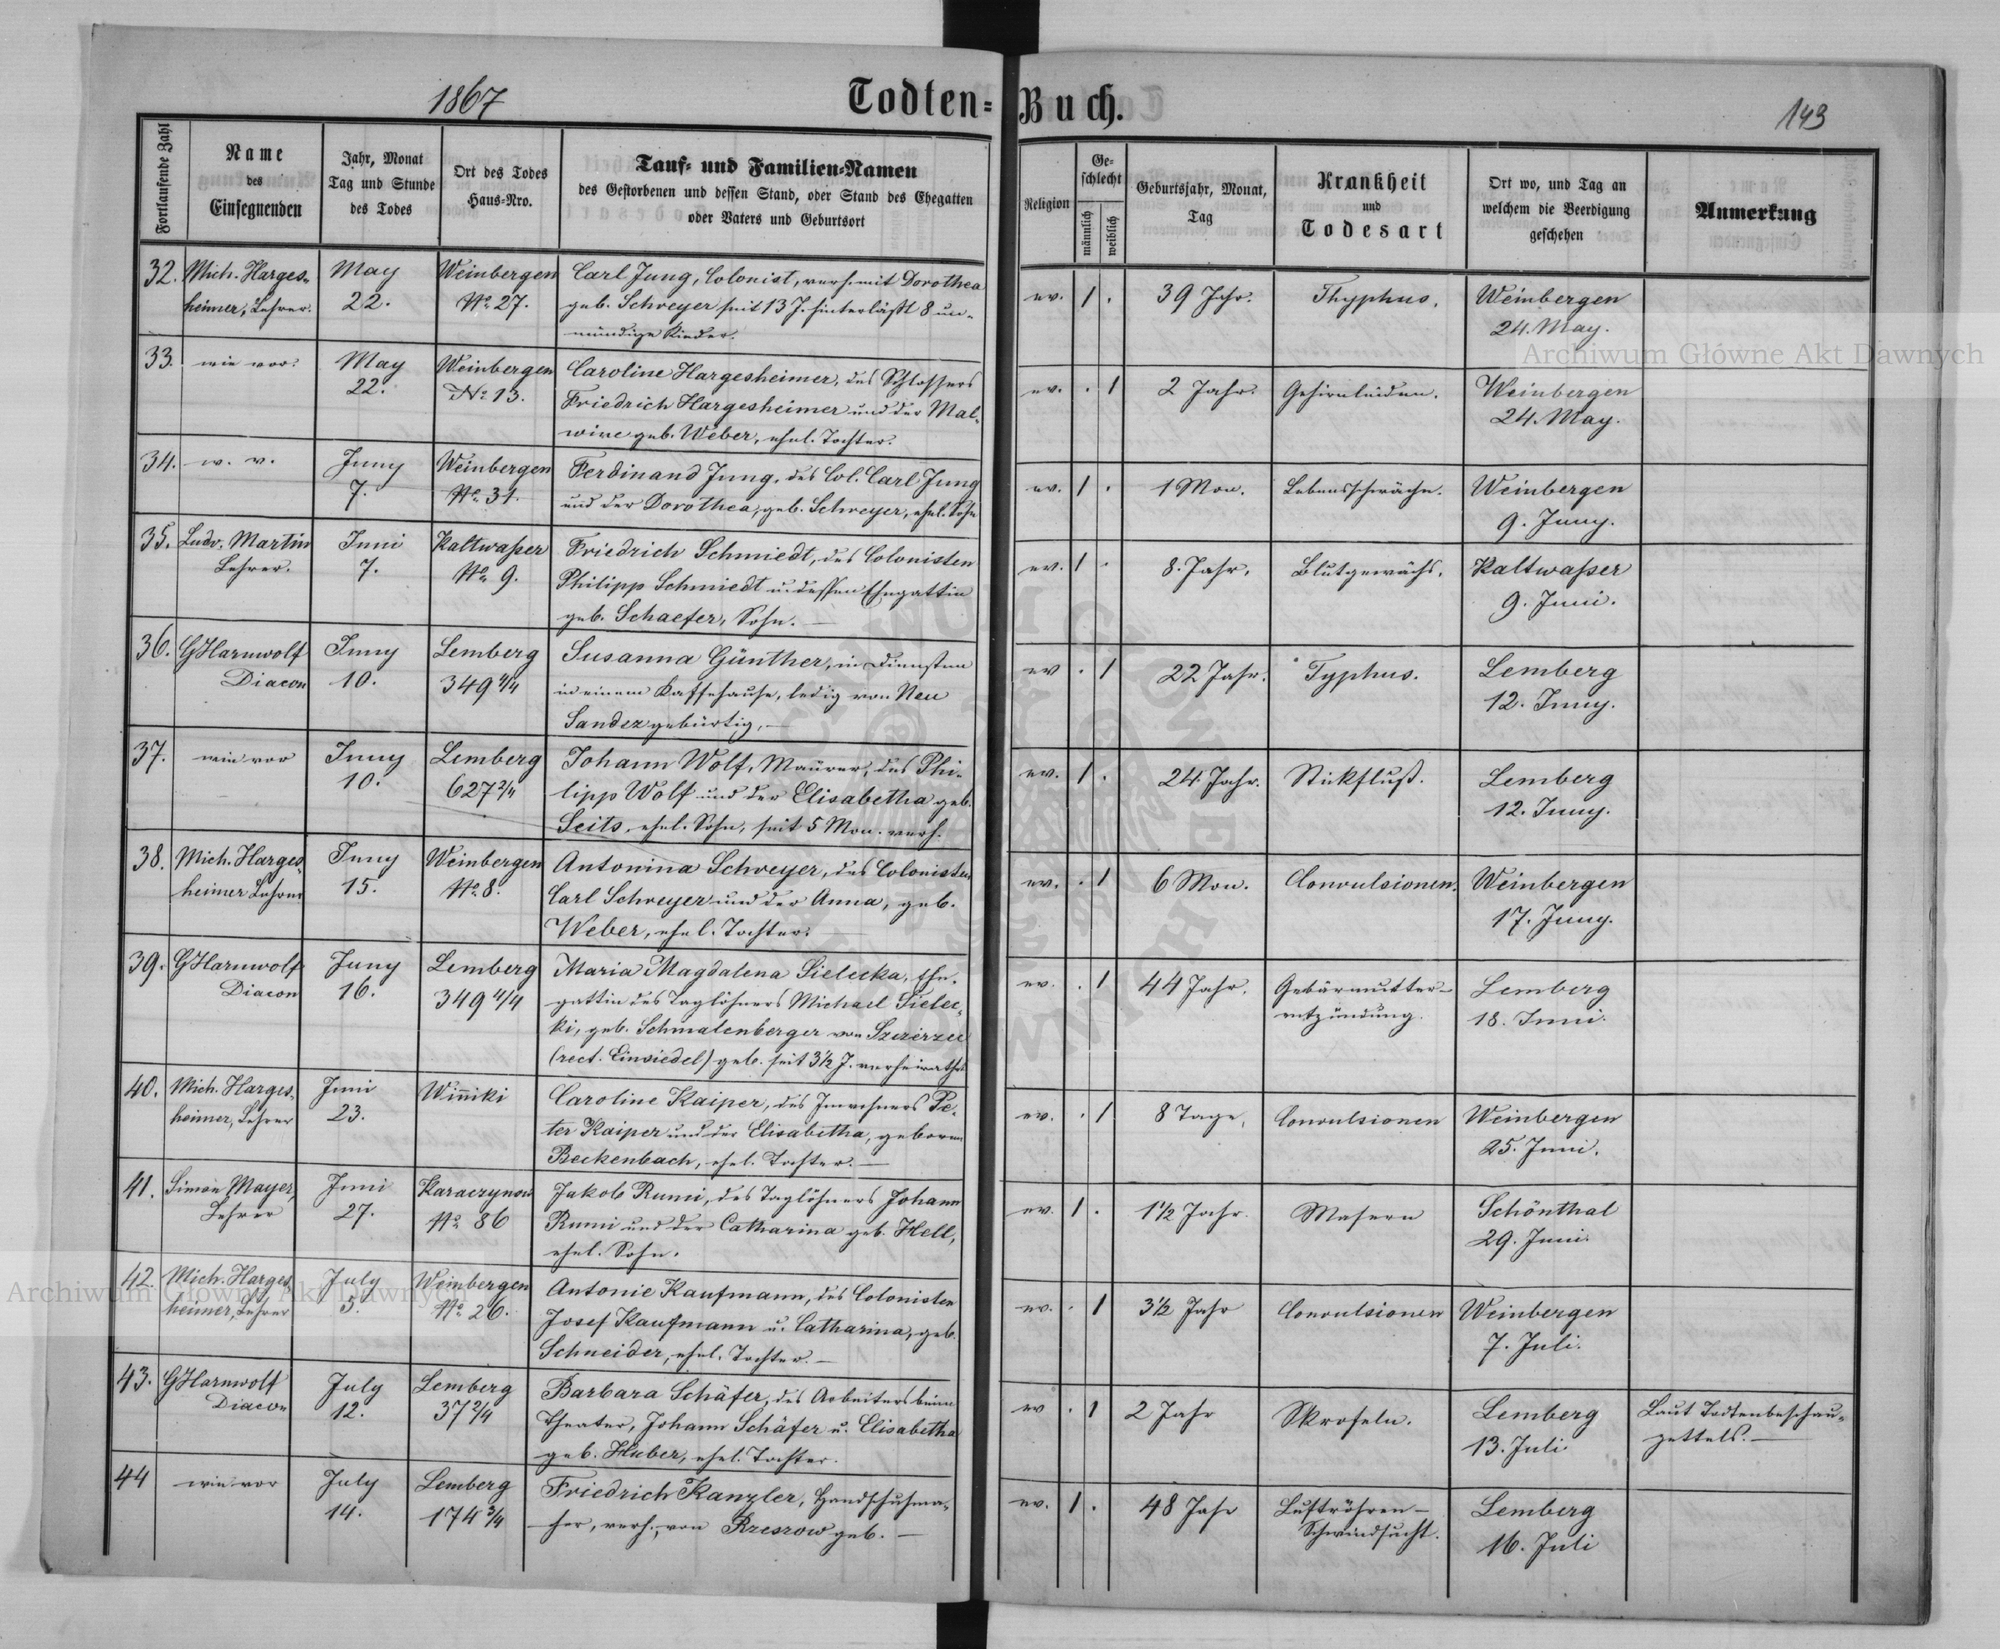 1867
Todten-Buch.
143
Fortlaufende Zahl
Name
des
Einsegnenden
Jahr, Monat
Tag und Stunde
des Todes
Ort des Todes
Haus-Nro.
Tauf- und Familien-Namen
des Gestorbenen und dessen Stand, oder Stand des Ehegatten
oder Vaters und Geburtsort
Religion
Ge-
schlecht
männlich
weiblich
Geburtsjahr, Monat,
Tag
Krankheit
und
Todesart
Ort wo, und Tag an
welchem die Beerdigung
geschehen
Anmerkung
32. Mich. Harges- May Weinbergen Carl Jung, Colonist, verh. mit Dorothea ev. 1 . 39 Jahr. Thyphus. Weinbergen
heimer, Lehrer. 22. No 27. geb. Schreyer seit 13 J. hinterläßt 8 un- 24. May.
mündige Kinder.
33. wie vor. May Weinbergen Caroline Hargesheimer, des Schlossers ev. . 1 2 Jahr. Gehirnleiden. Weinbergen
22. No 13. Friedrich Hargesheimer und der Mal- 24. May.
wine geb. Weber, ehel. Tochter.
34. w. v. Juny Weinbergen Ferdinand Jung, des Col. Carl Jung ev. 1 . 1 Mon. Lebensschwäche. Weinbergen
7. No 31. und der Dorothea, geb. Schreyer, ehel. Sohn 9. Juny.
35. Ludv. Martin Juni Kaltwaßer Friedrich Schmiedt, des Colonisten ev. 1 . 8. Jahr. Blutgewächs. Kaltwaßer
Lehrer. 7. No 9. Philipp Schmiedt u. dessen Ehegattin 9. Juni.
geb. Schaefer, Sohn.
36. GHarnwolf Juny Lemberg Susanna Günther, in Diensten ev . 1 22 Jahr. Typhus. Lemberg
Diacon 10. 349 4/4 in einem Kaffehause, ledig von Neu 12. Juny.
Sandez gebürtig.
37. wie vor Juny Lemberg Johann Wolf, Maurer, des Phi- ev. 1 . 24 Jahr. Stickfluß. Lemberg
10. 627 2/4 lipp Wolf und der Elisabetha geb. 12. Juny.
Seits, ehel. Sohn, seit 5 Mon. verh.
38. Mich. Harges- Juny Weinbergen Antonina Schreyer, des Colonisten ev. . 1 6 Mon. Convulsionen. Weinbergen
heimer Lehrer 15. No 8. Carl Schreyer und der Anna, geb. 17. Juny.
Weber, ehel. Tochter.
39. GHarnwolf Juny Lemberg Maria Magdalena Sielecka, Ehe- ev. . 1 44 Jahr. Gebärmutter- Lemberg
Diacon 16. 349 4/4 gattin des Taglöhners Michael Sielec- entzündung. 18. Juni.
ki, geb. Schmalenberger von Szczerzec
(rect. Einsiedel) geb. seit 3½ J. verheirathet
40. Mich. Harges- Juni Winniki Caroline Kaiper, des Inwohners Pe- ev. . 1 8 Tage. Convulsionen Weinbergen
heimer, Lehrer 23. ter Kaiper und der Elisabetha, geboren 25. Juni.
Beckenbach, ehel. Tochter.
41. Simon Mayer, Juni Karaczynow Jakob Rumi, des Taglöhners Johann ev. 1 . 1½ Jahr. Masern Schönthal
Lehrer 27. No 86 Rumi und der Catharina geb. Hell, 29. Juni.
ehel. Sohn.
42. Mich. Harges- July Weinbergen Antonie Kaufmann, des Colonisten ev. . 1 3½ Jahr Convulsionen Weinbergen
heimer, Lehrer 5. No 26. Josef Kaufmann u. Catharina, geb. 7. Juli.
Schneider, ehel. Tochter.
43. GHarnwolf July Lemberg Barbara Schäfer, des Arbeiters beim ev . 1 2 Jahr Skrofeln. Lemberg Laut Todtenbeschau-
Diacon 12. 37 2/4 Theater, Johann Schäfer u. Elisabetha 13. Juli zettels.
geb. Huber, ehel. Tochter.
44 wie vor July Lemberg Friedrich Kanzler, Handschuhma- ev. 1 . 48 Jahr Luftröhren- Lemberg
14. 174 3/4 cher, verh., von Rzeszow geb. Schwindsucht. 16. Juli
Archiwum Główne Akt Dawnych
Archiwum Główne Akt Dawnych